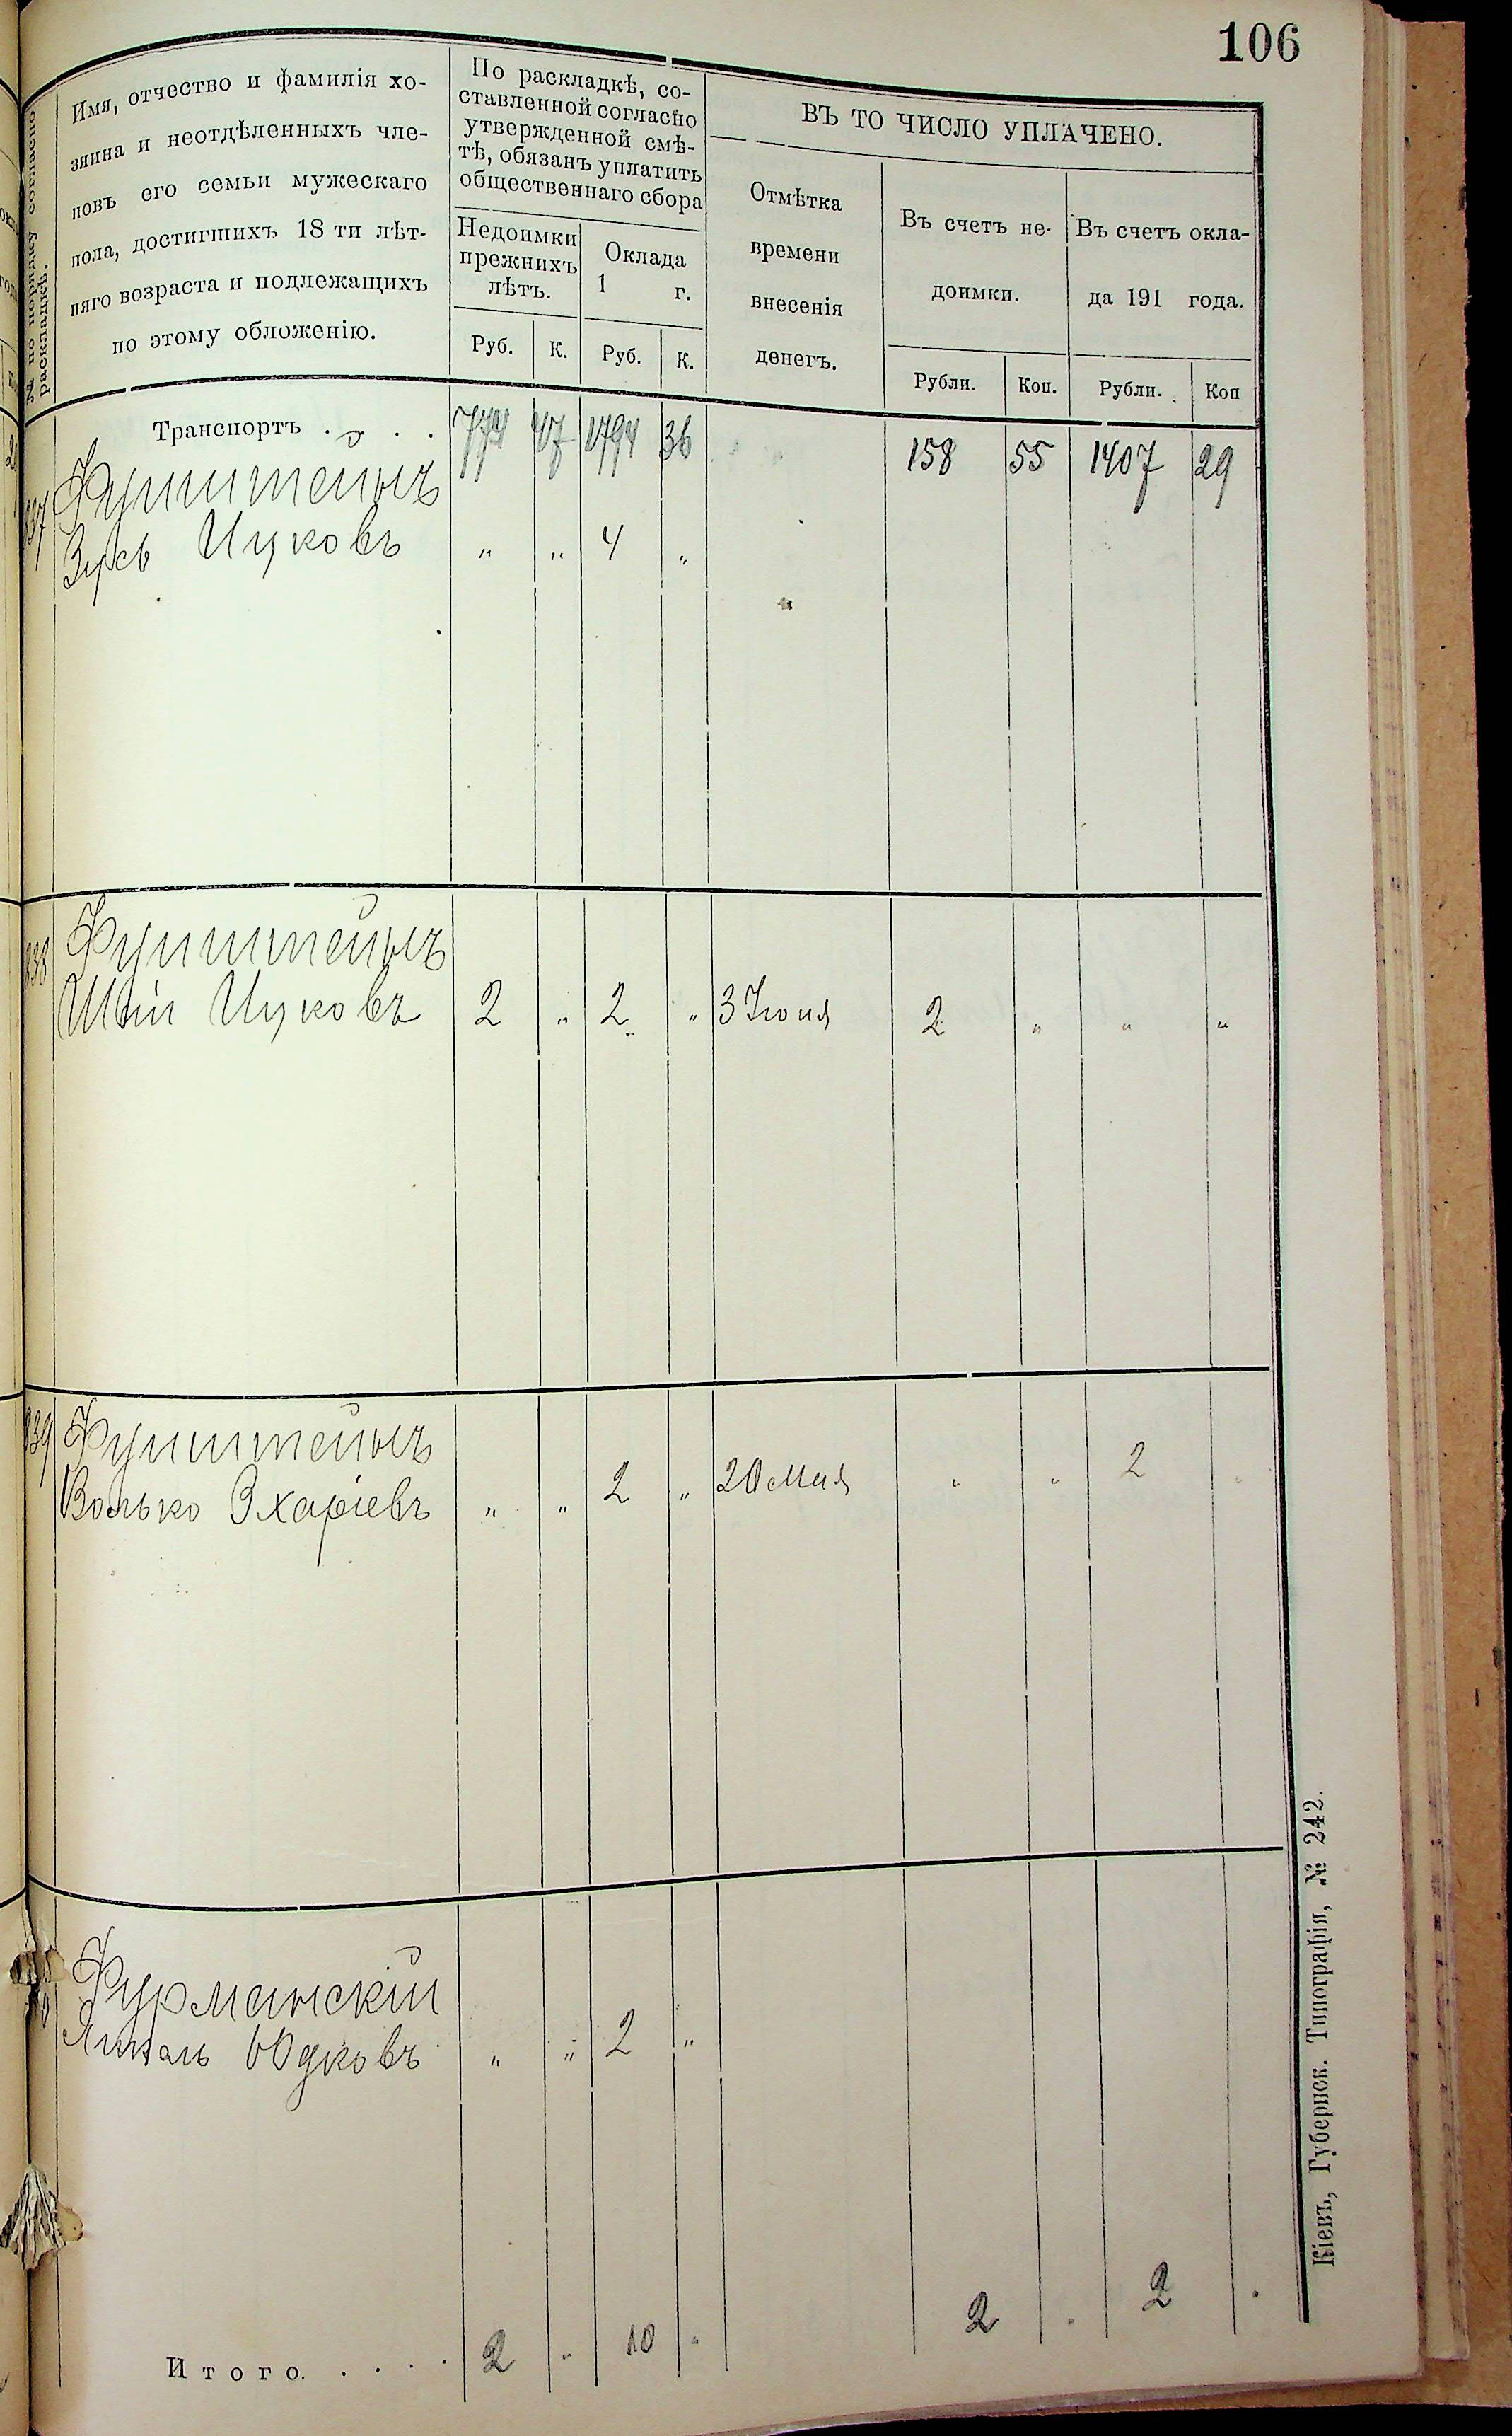 106
№ по порядку согласно
раскладкѣ.
Имя, отчество и фамилія хо-
зяина и неотдѣленныхъ чле-
новъ его семьи мужескаго
пола, достигшихъ 18 ти лѣт-
няго возраста и подлежащихъ
по этому обложенію.
По раскладкѣ, со-
ставленной согласно
утвержденной смѣ-
тѣ, обязанъ уплатить
общественнаго сбора
Недоимки
прежнихъ
лѣтъ.
Оклада
1 г.
Руб. К. Руб. К.
ВЪ ТО ЧИСЛО УПЛАЧЕНО.
Отмѣтка
времени
внесенія
денегъ.
Въ счетъ не-
доимки.
Въ счетъ окла-
да 191 года.
Рубли. Коп. Рубли. Коп
Транспортъ . . . . 47 1794 36 158 55 1407 29
837 Фуштейнъ
Зусь Ицковъ " " 4 "
838 Фуштейнъ
Ицковъ 2 " 2 " 3 Іюня 2 " " "
839 Фуштейнъ
Волько Зхаріевъ " " 2 " 20 Мая " " 2 "
Фурманскій
Юдковъ " " 2 "
Итого. . . . . 2 " 10 " 2 . 2 .
Кіевъ, Губернск. Типографія, № 242.